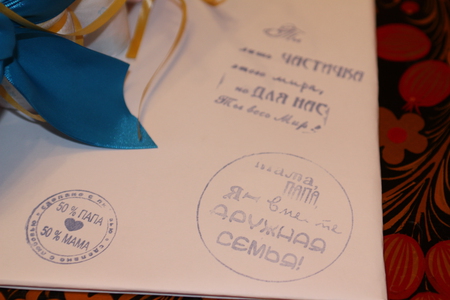 Ты
лишь ЧАСТИЧКА
этого мира,
но ДЛЯ НАС
Ты весь Мир!
мама,
ПАПА,
Я - вместе
ДРУЖНАЯ
СЕМЬЯ!
• Сделано с любовью • Сделано с любовью
50 % ПАПА
50 % МАМА